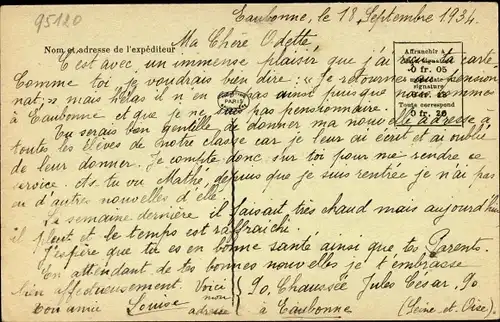 95120
Eaubonne, le 18 Septembre 1934.
Nom et adresse de l'expéditeur
Ma Chère Odette
Affranchir à
0 fr. 05
signature
Toute correspond
0 fr. 20
PARIS
C'est avec un immense plaisir que j'ai ta carte.
Comme toi je voudrais bien dire : "Je retourne au pension
nat," mais hélas il n'en pas ainsi puisque nous sommes
à Eaubonne et que je ne suis pas pensionnaire.
Tu serais bien gentille de donner ma nouvelle adresse à
toutes les élèves de notre classe car je leur ai écrit et ai oublié
de leur donner. Je compte donc sur toi pour me rendre ce
service. As tu vu Mathé, depuis que je suis rentrée je n'ai pas
eu d'autres nouvelles d'elle.
La semaine dernière il faisait très chaud mais aujourd'hui
il pleut et le temps est rafraîchi.
J'espère que tu es en bonne santé ainsi que tes Parents.
En attendant de tes bonnes nouvelles je t'embrasse
bien affectueusement. Voici mon adresse
Ton amie Louise
90, Chaussée Jules César, 90
à Eaubonne
(Seine et Oise).